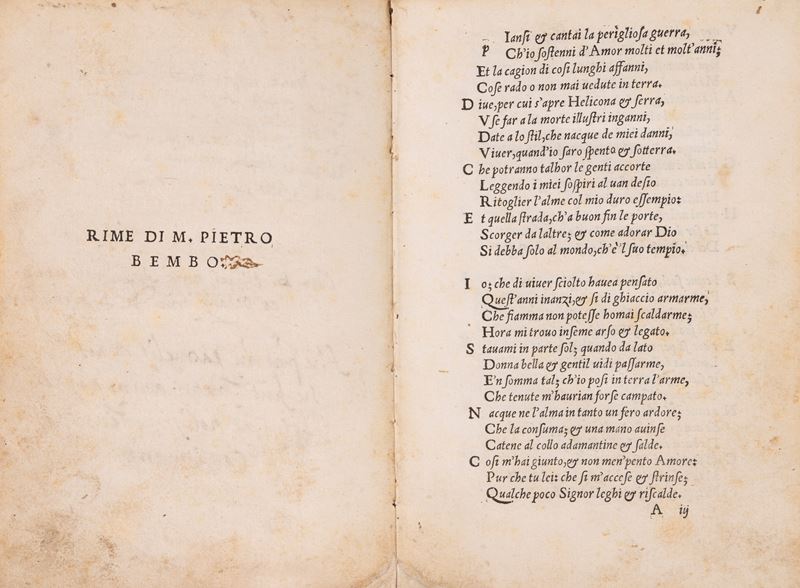 RIME DI M. PIETRO
BEMBO
P Ianſi & cantai la perìglioſa guerra,
Ch'io ſoſtenni d'Amor molti et molt'anni;
Et la cagion di coſi lunghi affanni,
Coſe rado o non mai uedute in terra.
D iue, per cui s'apre Helicona & ſerra,
Vſe far a la morte illuſtri inganni,
Date a lo ſtil, che nacque de miei danni,
Viuer, quand'io ſaro ſpento & ſotterra.
C he potranno talhor le genti accorte
Leggendo i miei ſoſpiri al uan deſio
Ritoglier l'alme col mio duro eſſempio:
E t quella ſtrada, ch'a buon fin le porte,
Scorger da laltre; & come adorar Dio
Si debba ſolo al mondo, ch'è'l ſuo tempio.
I o; che di uiuer ſciolto hauea penſato
Queſt'anni inanzi, & ſi di ghiaccio armarme,
Che fiamma non poteſſe homai ſcaldarme;
Hora mi trouo inſeme arſo & legato.
S tauami in parte ſol; quando da lato
Donna bella & gentil uidi paſſarme,
E'n ſomma tal; ch'io poſi in terra l'arme,
Che tenute m'haurian forſe campato.
N acque ne l'alma in tanto un fero ardore;
Che la conſuma; & una mano auinſe
Catene al collo adamantine & ſalde.
C oſi m'hai giunto, & non men'pento Amore:
Pur che tu lei: che ſi m'acceſe & ſtrinſe;
Qualche poco Signor leghi & riſcalde.
A iij